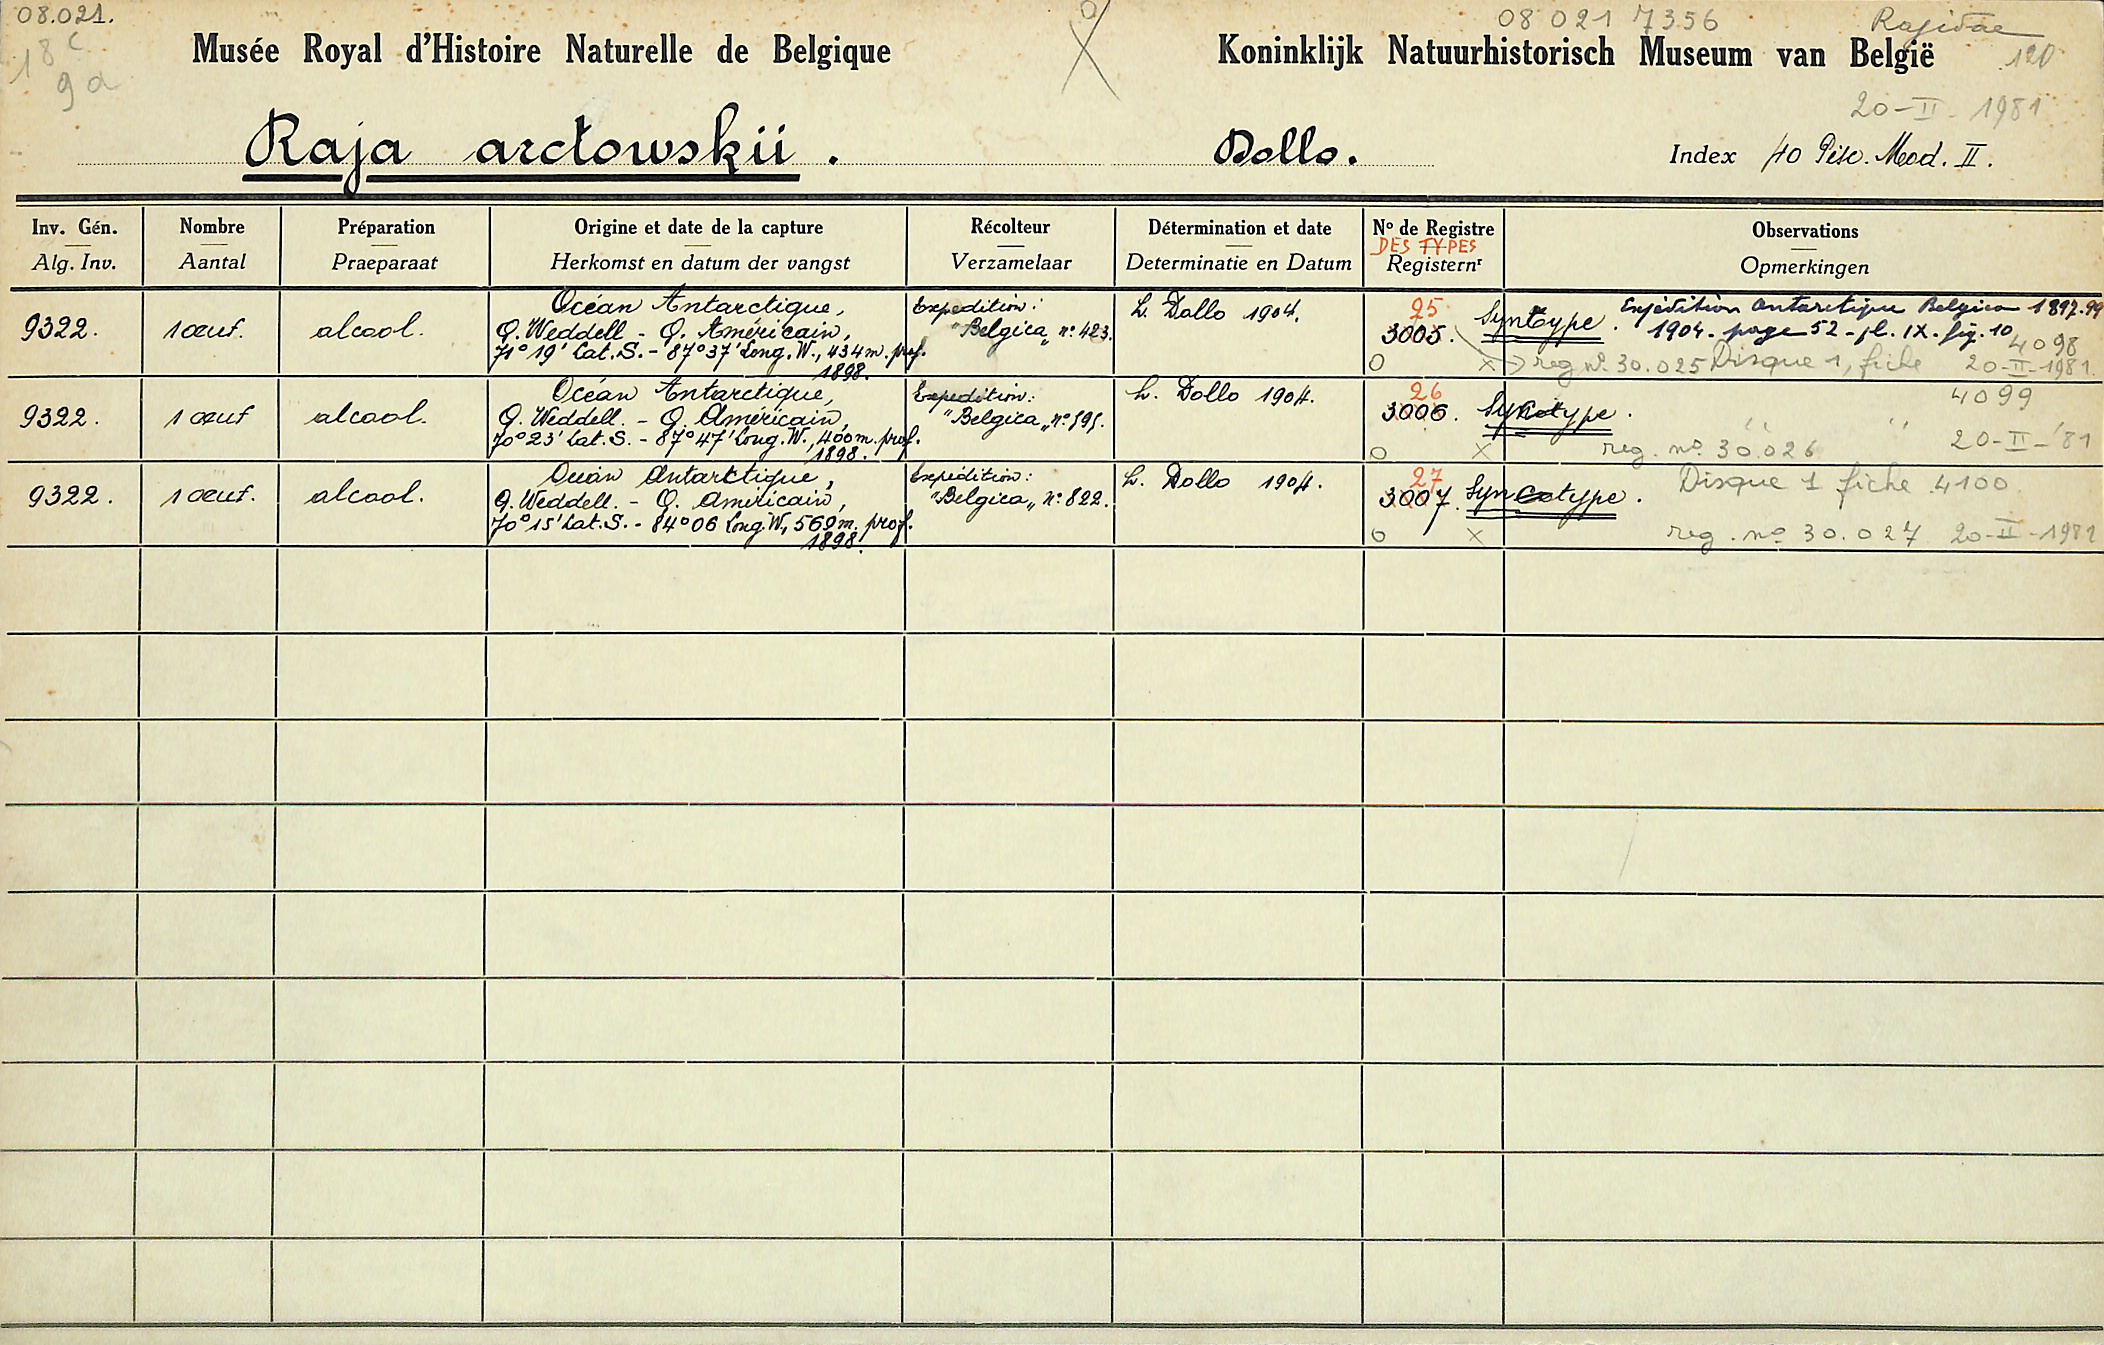 08.021.
08 021 7356
Rajidae
18 c
9 a
120
Musée Royal d'Histoire Naturelle de Belgique
Koninklijk Natuurhistorisch Museum van België
20-II-1981
Raja arctowskii. Dollo. Index 40 Pisc. Mod. II.
Inv. Gén. Nombre Préparation Origine et date de la capture Récolteur Détermination et date No de Registre Observations
DES TYPES
Alg. Inv. Aantal Praeparaat Herkomst en datum der vangst Verzamelaar Determinatie en Datum Registernr Opmerkingen
9322. 1 œuf. alcool.
Océan Antarctique,
Q. Weddell - Q. Américain,
71°19' Lat. S. - 87°37' Long. W., 434 m. prof.
1898.
Expedition:
"Belgica„ n° 423.
L. Dollo 1904.
25
3005.
Syntype. Expédition Antarctique Belgica 1897-99
1904 - page 52 - pl. IX - fig. 10
4098
reg n° 30.025 Disque 1, fiche 20-II-1981
9322. 1 œuf alcool.
Océan Antarctique,
Q. Weddell. - Q. Américain,
70°23' Lat. S. - 87°47' Long. W., 400 m. prof.
1898.
Expedition:
"Belgica„ n° 595.
L. Dollo 1904.
26
3006. Syntype.
4099
" "
reg. no 30.026 20-II-'81
9322. 1 œuf. alcool.
Océan Antarctique,
Q. Weddell. - Q. Américain,
70°15' Lat. S. - 84°06 Long. W., 569 m. prof.
1898.
Expédition:
"Belgica„ n° 822.
L. Dollo 1904.
27
3007. Syncotype.
Disque 1 fiche 4100
reg. no 30.027 20-II-1981